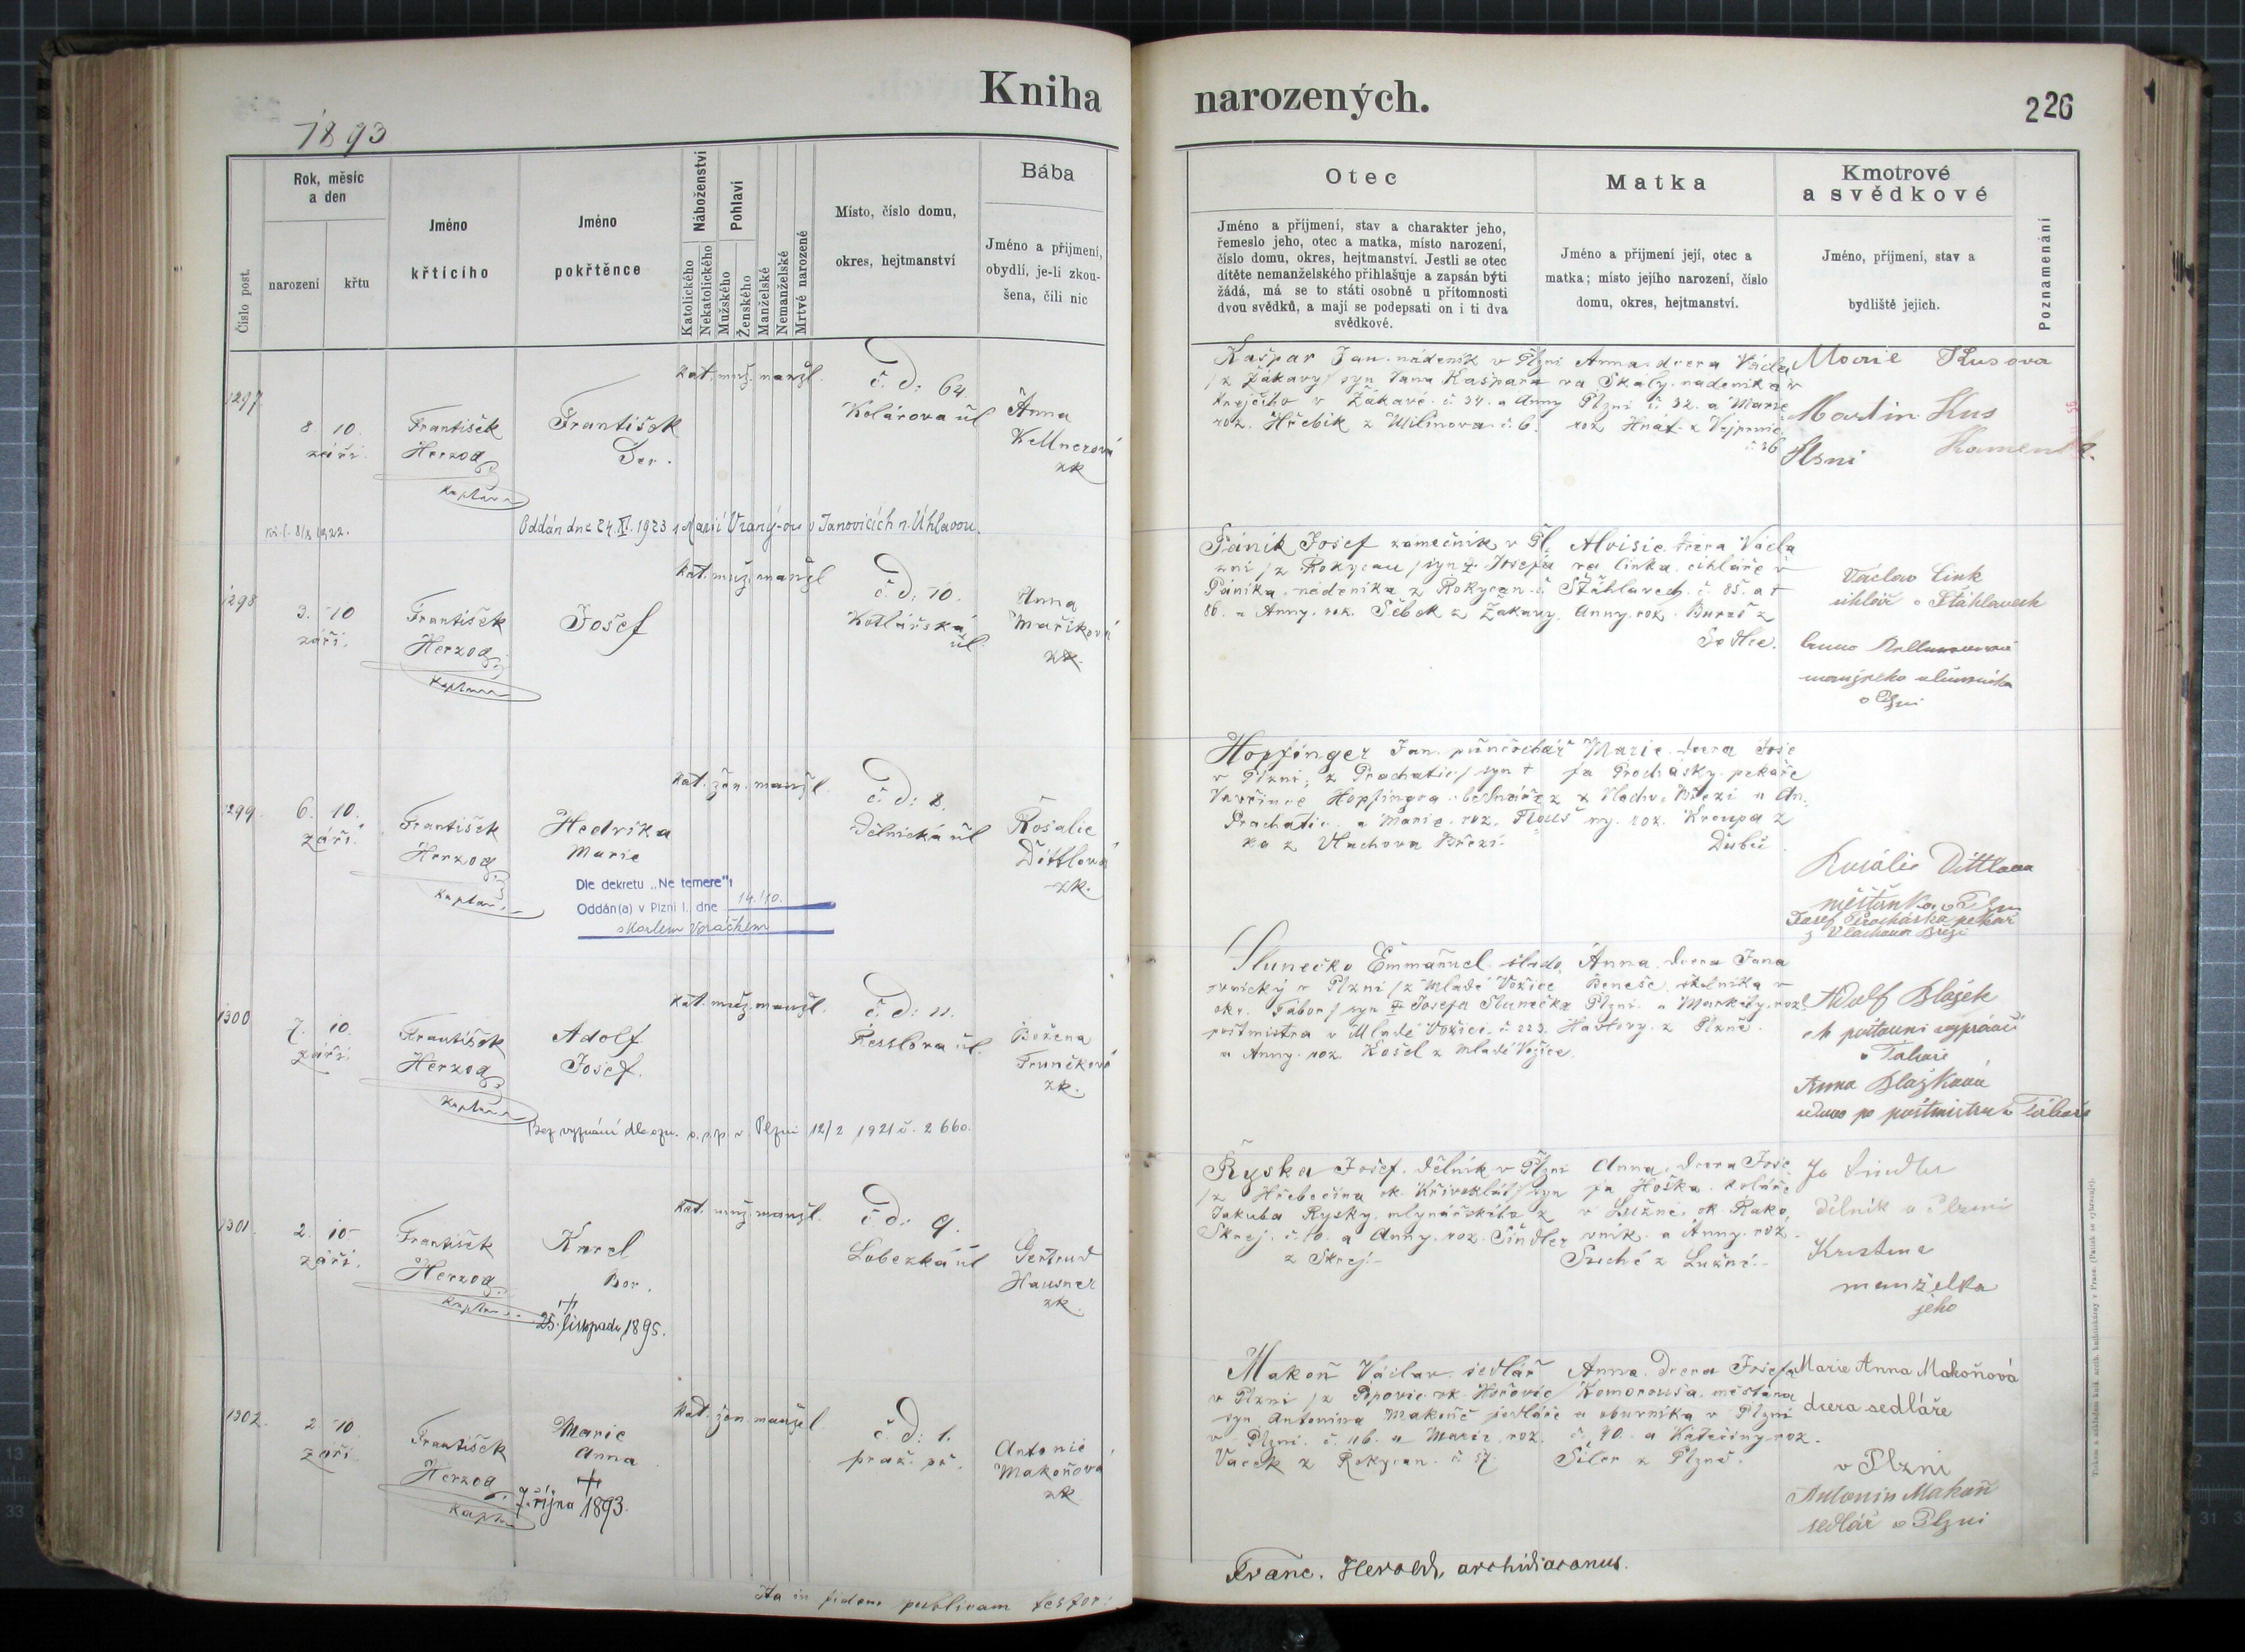 Kniha narozených.
226
1893
Číslo post.
Rok, měsíc
a den
narození
křtu
Jméno
křtícího
Jméno
pokřtěnce
Náboženství
Katolického
Nekatolického
Pohlaví
Mužského
Ženského
Manželské
Nemanželské
Mrtvě narozené
Místo, číslo domu,
okres, hejtmanství
Bába
Jméno a přijmení,
obydlí, je-li zkou-
šena, čili nic
Otec
Jméno a příjmení, stav a charakter jeho,
řemeslo jeho, otec a matka, místo narození,
číslo domu, okres, hejtmanství. Jestli se otec
dítěte nemanželského přihlašuje a zapsán býti
žádá, má se to státi osobně u přítomnosti
dvou svědků, a mají se podepsati on i ti dva
svědkové.
Matka
Jméno a přijmení její, otec a
matka; místo jejího narození, číslo
domu, okres, hejtmanství.
Kmotrové
a svědkové
Jméno, příjmení, stav a
bydliště jejich.
Poznamenání
1297
8. 10.
září.
František
Herzog
kaplan
František
Ser.
kat. muž. manžl.
č. d: 64.
Kolárova ul
Anna
Kellnerová
zk
Oddán dne 24. XI. 1923 s Marií Vraný-ou v Janovicích n. Úhlavou.
Kašpar Jan. nádeník v Plzni
/z Žákavy/ syn Jana Kašpara
krejčího v Žákavé. č. 34. a Anny
roz. Hřebík z Milínova. č. 6.
Anna. dcera Václa
va Skaly. nádeníka v
Plzni č. 32. a Marie
roz. Hnát z Vejprnic
č. 36
Marie Kusova
Martin Kus
Plzni
1298
3. 10
září.
František
Herzog
kaplan
Josef
kat. muž. manžel
č. d: 10.
Kotlářská
ul.
Anna
Maříková
zk.
Pánik Josef zámečník v Pl
zni /z Rokycan/ syn † Josefa
Pánika. nádeníka z Rokycan č
86. a Anny. roz. Šebek z Žákavy.
Aloisie. dcera Václa
va Linka. cihláře v
Štáhlavech. č. 85. a †
Anny. roz. Bureš z
Sedlec.
Václav Link
cihlář v Štáhlavech
v Plzni
1299.
6. 10.
září.
František
Herzog
kaplan
Hedvika
Marie
Dle dekretu „Ne temere“
Oddán(a) v Plzni I. dne 14./10.
s Karlem Voráčkem
kat. žen. manžl.
č. d: 8.
Dělnická ul
Rosalie
Dittlová
zk.
Hopfinger Jan. punčochář
v Plzni; z Prachatic/ syn †
Vavřince Hopfingra. bednáře z
Prachatic. a Marie. roz. Flouš
ka z Vlachova Březí.
Marie. dcera Jose
fa Procházky. pekaře
z Vlachov. Březí a An
ny. roz. Kroupa z
Dubů.
Rosálie Dittlova
měšťanka v Plzni
Josef Procháska pekař
z Vlachova Březí
1300
7. 10
září.
František
Herzog
kaplan
Adolf
Josef.
kat. muž. manžl.
č. d: 11.
Resslova ul.
Božena
Trunčková
zk.
Bez vyznání dle ozn. o. s. p. v Plzni 12/2 1921 č. 2660.
Slunečko Emmanuel. slado
vnický v Plzni /z Mladé Vožice
okr. Tábor/ syn † Josefa Slunečka
poštmistra v Mladé Vožici. č. 223.
a Anny. roz. Košel z Mladé Vožice.
Anna. dcera Jana
Beneše, v
Plzni. a Markéty. roz.
Havlovy. z Plzně.
Adolf Blažek
c k poštovní
v Táboře
Anna Blažková
vdova po poštmistru v Táboře
1301.
2. 10
září.
František
Herzog
kaplan.
Karel
Bor.
†
25. listopadu 1895.
kat. muž. manžl.
č. d: 9.
Lobezká ul
Gertrud
Hausner
zk.
Ryska Josef. dělník v Plzni
/z Hřebečína ok. Křivoklát/ syn
Jakuba Rysky. mlynářského z
Skrej. č. 10. a Anny. roz. Šindler
z Skrej.
Anna. dcera Jose
fa Hoška. koláře
v Lužné. ok. Rako
vník. a Anny. roz.
Suché z Lužné.
Jo Šindler
dělník v Plzni
Kristina
manželka
jeho
1302.
2 10.
září
František
Herzog.
kaplan
Marie
Anna
†
7. října 1893.
kat. žen. manžel
č. d: 1.
praž. př.
Antonie
Makoňová
zk
Makoň Václav. sedlář
v Plzni /z Popovic ok. Hořovic/
syn Antonína Makoně sedláře
v Plzni. č. 116. a Marie. roz.
Vacek z Rokycan. č. 57.
Anna. dcera Josefa
Komorouša. měšťana
a obuvníka v Plzni
č. 90. a Kateřiny. roz.
Šiler z Plzně.
Marie Anna Makoňová
dcera sedláře
v Plzni
Antonín Makoň
sedlář v Plzni
Ita in fidem publicam testor:
Franc. Herold, archidiaconus.